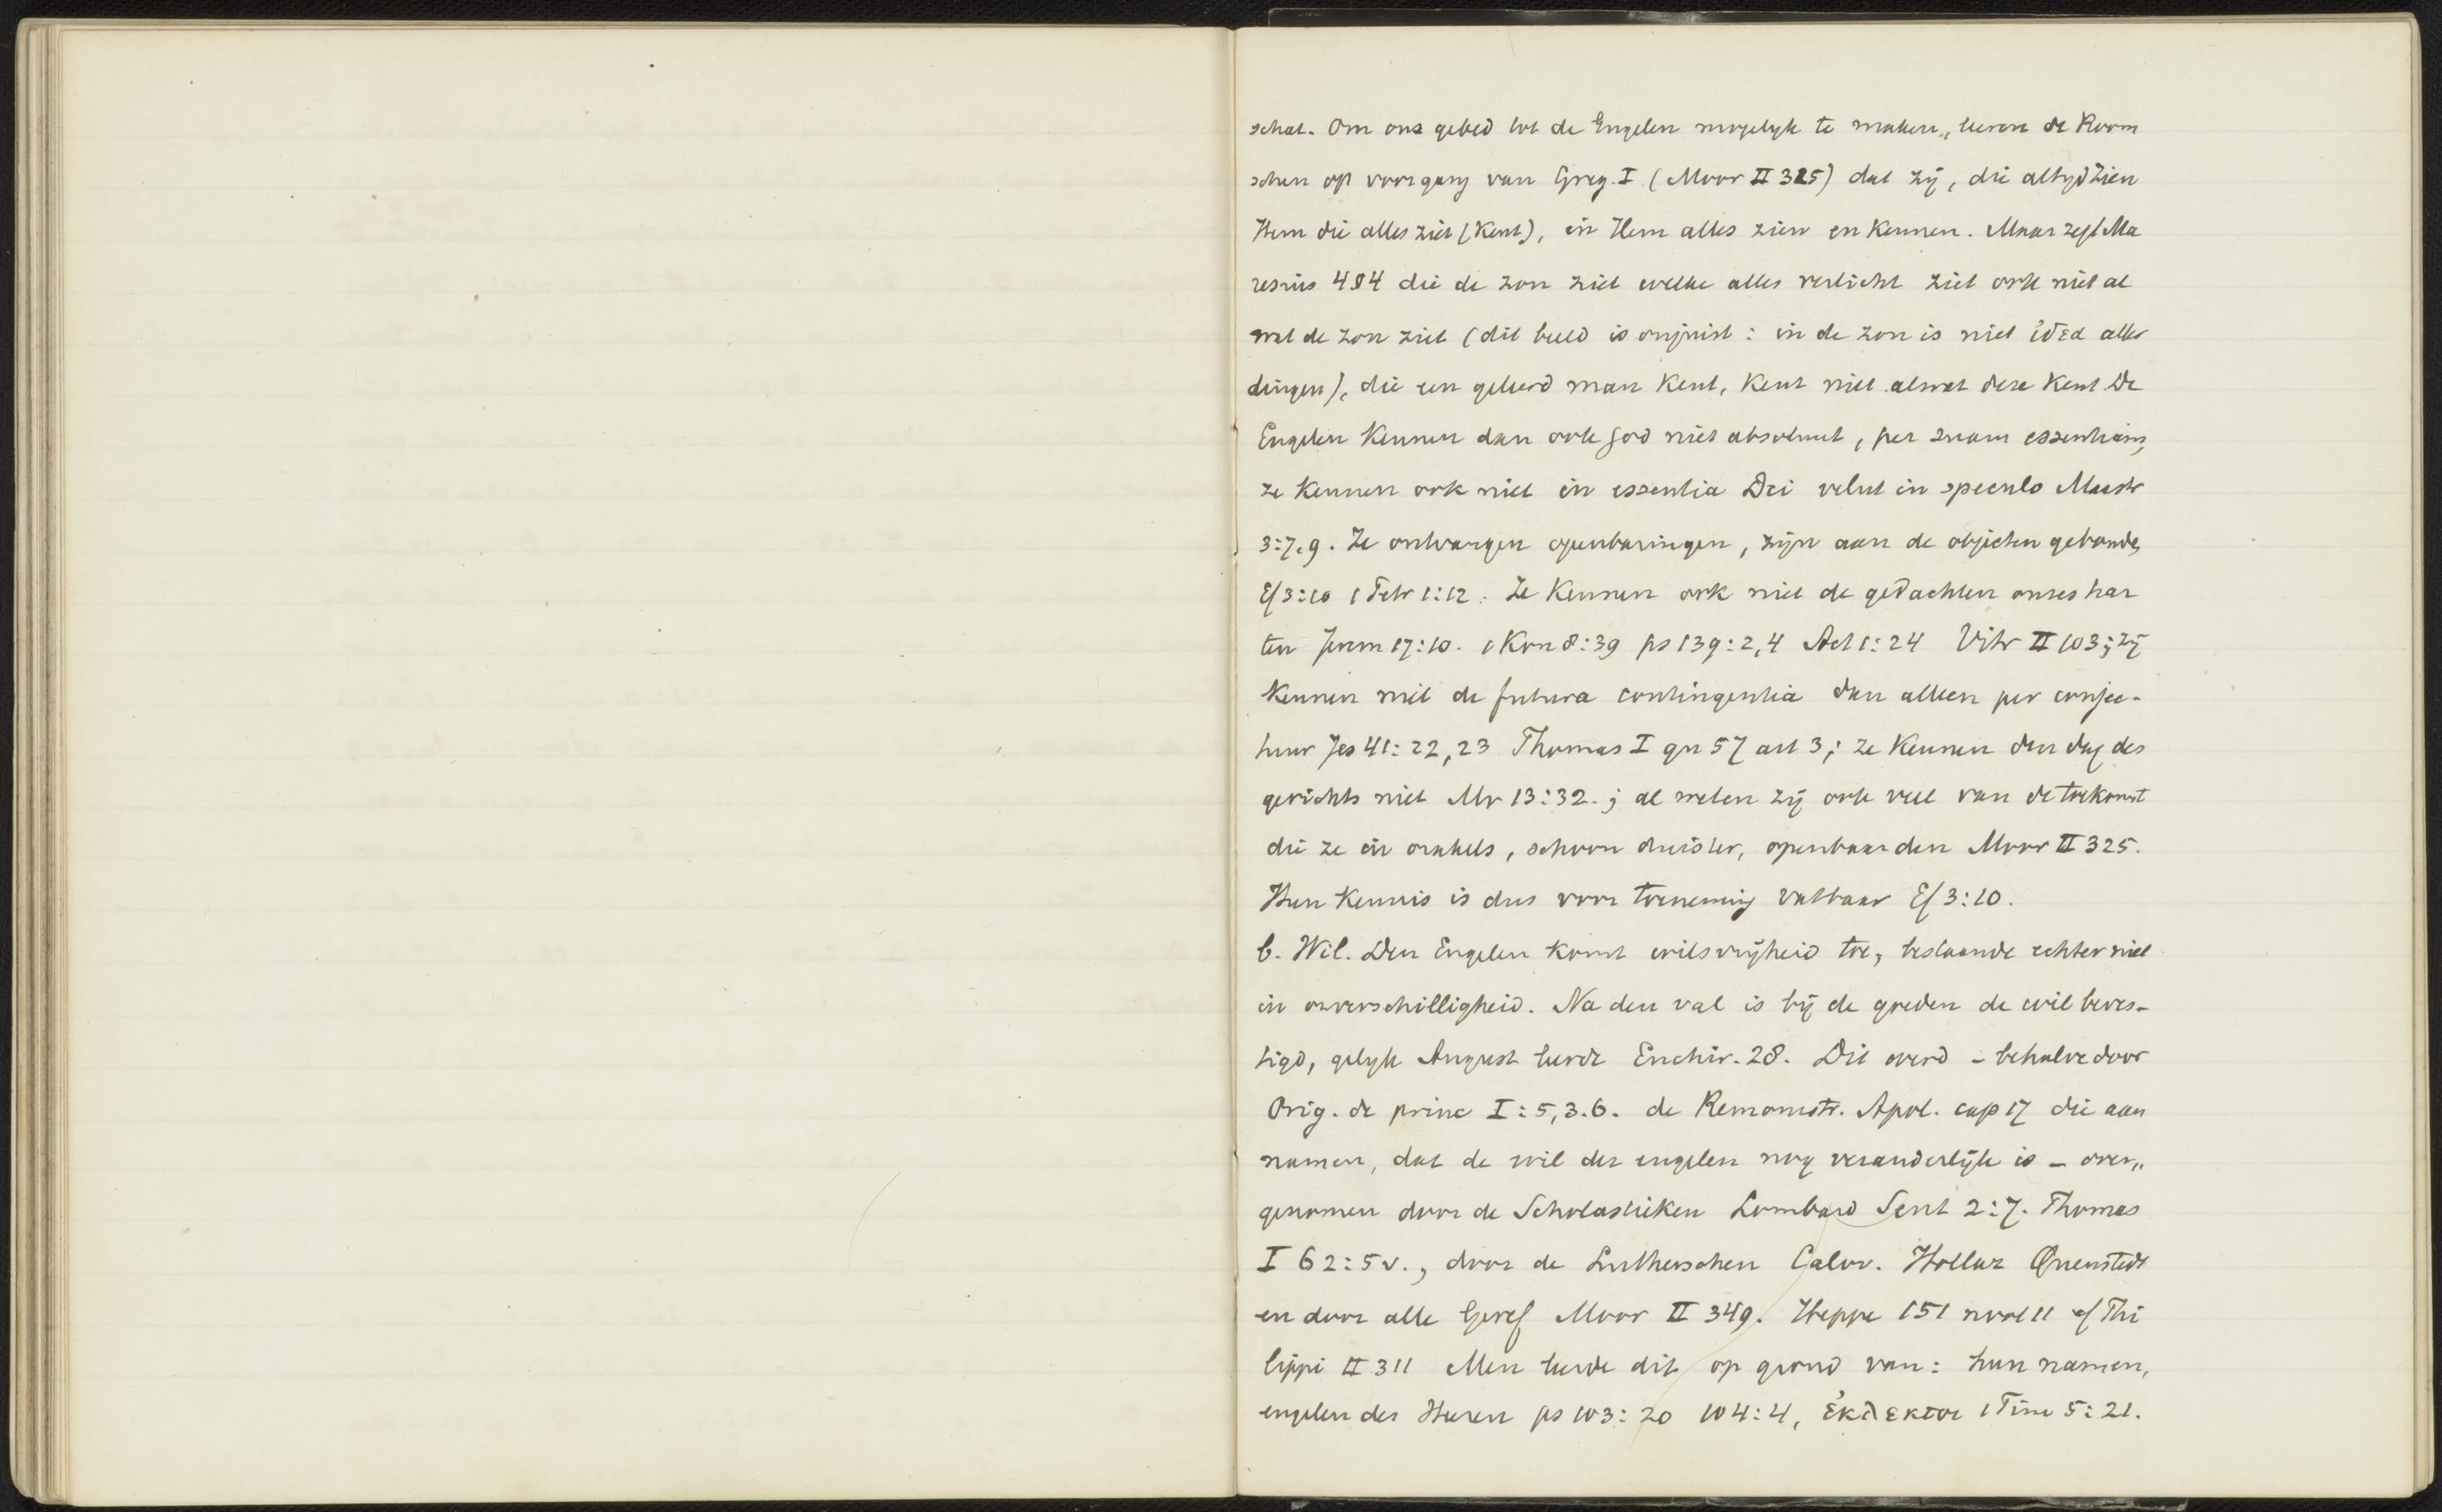 schat. Om ons gebed tot de Engelen mogelyk te maken, leeren de Room
schen op voorgang van Greg. I (Moor II 325) dat zij, die altyd zien
Hem die alles ziet (kent), in Hem alles zien en kennen. Maar zegt Ma
resius 484 die de zon ziet welke alles verlicht ziet ook niet al
wat de zon ziet (dit beeld is onjuist: in de zon is niet ἰδεα aller
dingen), die een geleerd man kent, kent niet alwat deze kent De
Engelen kennen dan ook God niet absoluut, per suam essentiam,
ze kennen ook niet in essentia Dei velut in speculo Mastr
3:7.9. Ze ontvangen openbaringen, zijn aan de objecten gebonden
Ef 3:10 1 Petr 1:12. Ze kennen ook niet de gedachten onzes har
ten Jerem 17:10. 1 Kon 8:39 ps 139:2,4 Act 1:24 Vitr II 103; zij
kennen niet de futura contingentia dan alleen per conjec-
tuur Jes 41:22,23 Thomas I qu 57 art 3; ze kennen den dag des
gerichts niet Mr 13:32.; al weten zij ook veel van de toekomst
die ze in orakels, schoon duister, openbaarden Moor II 325.
Hun kennis is dus voor toeneming vatbaar Ef 3:10.
b. Wil. Den Engelen komt wilsvrijheid toe, bestaande echter niet
in onverschilligheid. Na den val is bij de goeden de wil beves-
tigd, gelyk August leerde Enchir. 28. Dit werd - behalve door
Orig. de princ I:5,3.6. de Remonstr. Apol. cap 17 die aan
namen, dat de wil der engelen nog veranderlijk is - over„
genomen door de Scholastieken Lombard Sent 2:7. Thomas
I 62:5 v., door de Lutherschen Calov. Hollaz Quenstedt
en door alle Geref Moor II 349. Heppe 151 noot 11 cf Phi
lippi II 311 Men leerde dit op grond van: hun namen,
engelen des Heeren ps 103:20 104:4, ἐκλεκτοι 1 Tim 5:21.